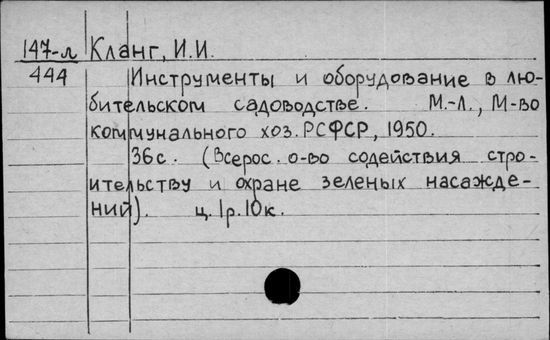 147-л Кланг, И.И.
444 Инструменты и оборудование в лю-
бительском садоводстве. М.-Л., М-во
коммунального хоз. РСФСР, 1950.
36с. (Всерос. о-во содействия стро-
ительству и охране зеленых насажде-
ний). ц. 1р. 10к.